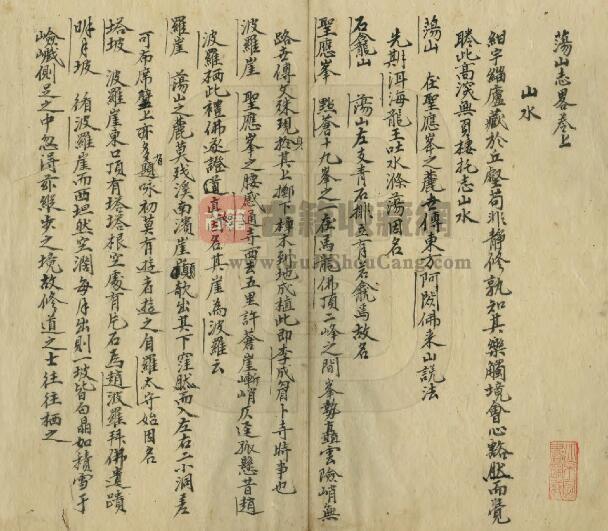 蕩山志畧卷上
山水
紺宇緇廬藏於丘壑苟非靜修孰知其樂觸境會心豁然而覺
睠此高深無負棲托志山水
蕩山 在聖應峯之麓世傳東方阿閦佛來山說法
先期洱海龍王吐水滌蕩因名
石龕山 蕩山左支青石排立有石龕焉故名
聖應峯 點蒼十九峯之一在馬龍佛頂二峰之間峯勢矗雲險峭無
路世傳文殊現於其上擲下樟木到地成植此即李成眉卜寺時事也
波羅崖 聖應峯之腰感通寺西去五里許蒼崖嶄峭仄逕孤懸昔趙
波羅栖此禮佛遂證道真因名其崖為波羅云
羅崖 蕩山之麓莫殘溪南濱崖巔欹出其下窪然而入左右二小洞差
可布席壁上亦多有題咏初莫有遊者遊之自羅太守始因名
塔坡 波羅崖東口頂有塔塔根空處有片石焉趙波羅拜佛遺蹟
明月坡 循波羅崖而西坦然空濶每月出則一坡皆白晶如積雪于
嶮巇側足之中忽得亦縱步之境故修道之士往往栖之
書籍收藏網
ShouCang.com